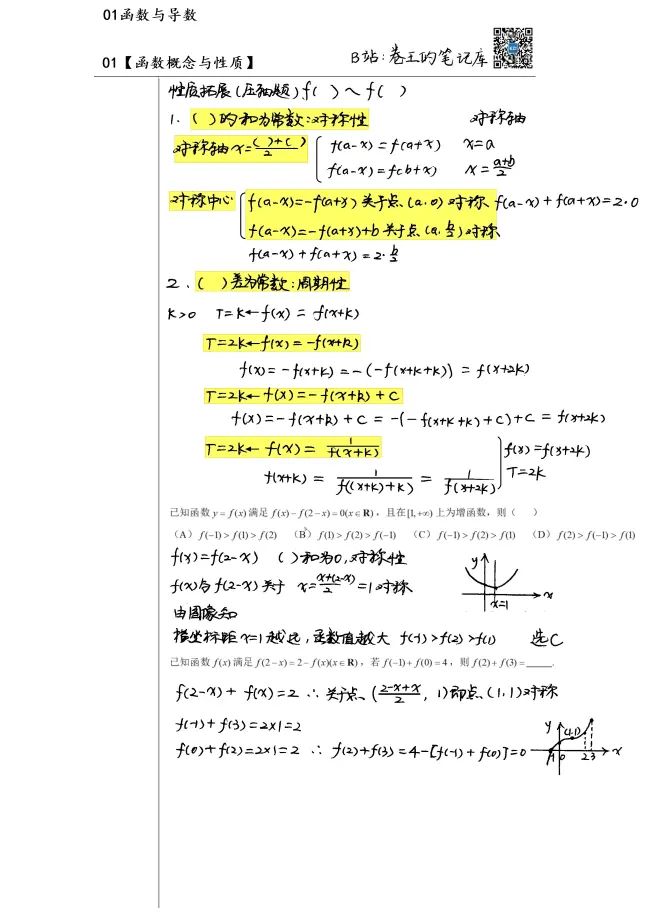 01函数与导数
01【函数概念与性质】
B站:卷王的笔记库
性质拓展(压轴题) f( ) ~ f( )
1. ( )的和为常数:对称性 对称轴
对称轴 x=(( )+( ))/2 { f(a-x)=f(a+x) x=a
f(a-x)=f(b+x) x=(a+b)/2
对称中心 { f(a-x)=-f(a+x)关于点(a,0)对称 f(a-x)+f(a+x)=2·0
f(a-x)=-f(a+x)+b关于点(a,b/2)对称
f(a-x)+f(a+x)=2·b/2
2. ( )差为常数:周期性
k>0 T=k←f(x)=f(x+k)
T=2k←f(x)=-f(x+k)
f(x)=-f(x+k)=-(-f(x+k+k))=f(x+2k)
T=2k←f(x)=-f(x+k)+C
f(x)=-f(x+k)+C=-(-f(x+k+k)+C)+C=f(x+2k)
T=2k←f(x)=1/f(x+k)
f(x)=f(x+2k)
f(x+k)=1/f((x+k)+k)=1/f(x+2k) T=2k
已知函数 y=f(x)满足 f(x)-f(2-x)=0(x∈R),且在[1,+∞)上为增函数,则( )
(A) f(-1)>f(1)>f(2) (B) f(1)>f(2)>f(-1) (C) f(-1)>f(2)>f(1) (D) f(2)>f(-1)>f(1)
f(x)=f(2-x) ( )和为0,对称性
f(x)与f(2-x)关于 x=(x+(2-x))/2=1对称
y
x
x=1
由图象知
横坐标距x=1越远,函数值越大 f(-1)>f(2)>f(1) 选C
已知函数 f(x)满足 f(2-x)=2-f(x)(x∈R),若 f(-1)+f(0)=4,则 f(2)+f(3)=_____.
f(2-x)+f(x)=2 ∴关于点((2-x+x)/2,1)即点(1,1)对称
f(-1)+f(3)=2×1=2
f(0)+f(2)=2×1=2 ∴ f(2)+f(3)=4-[f(-1)+f(0)]=0
y
(1,1)
-1 0 2 3 x